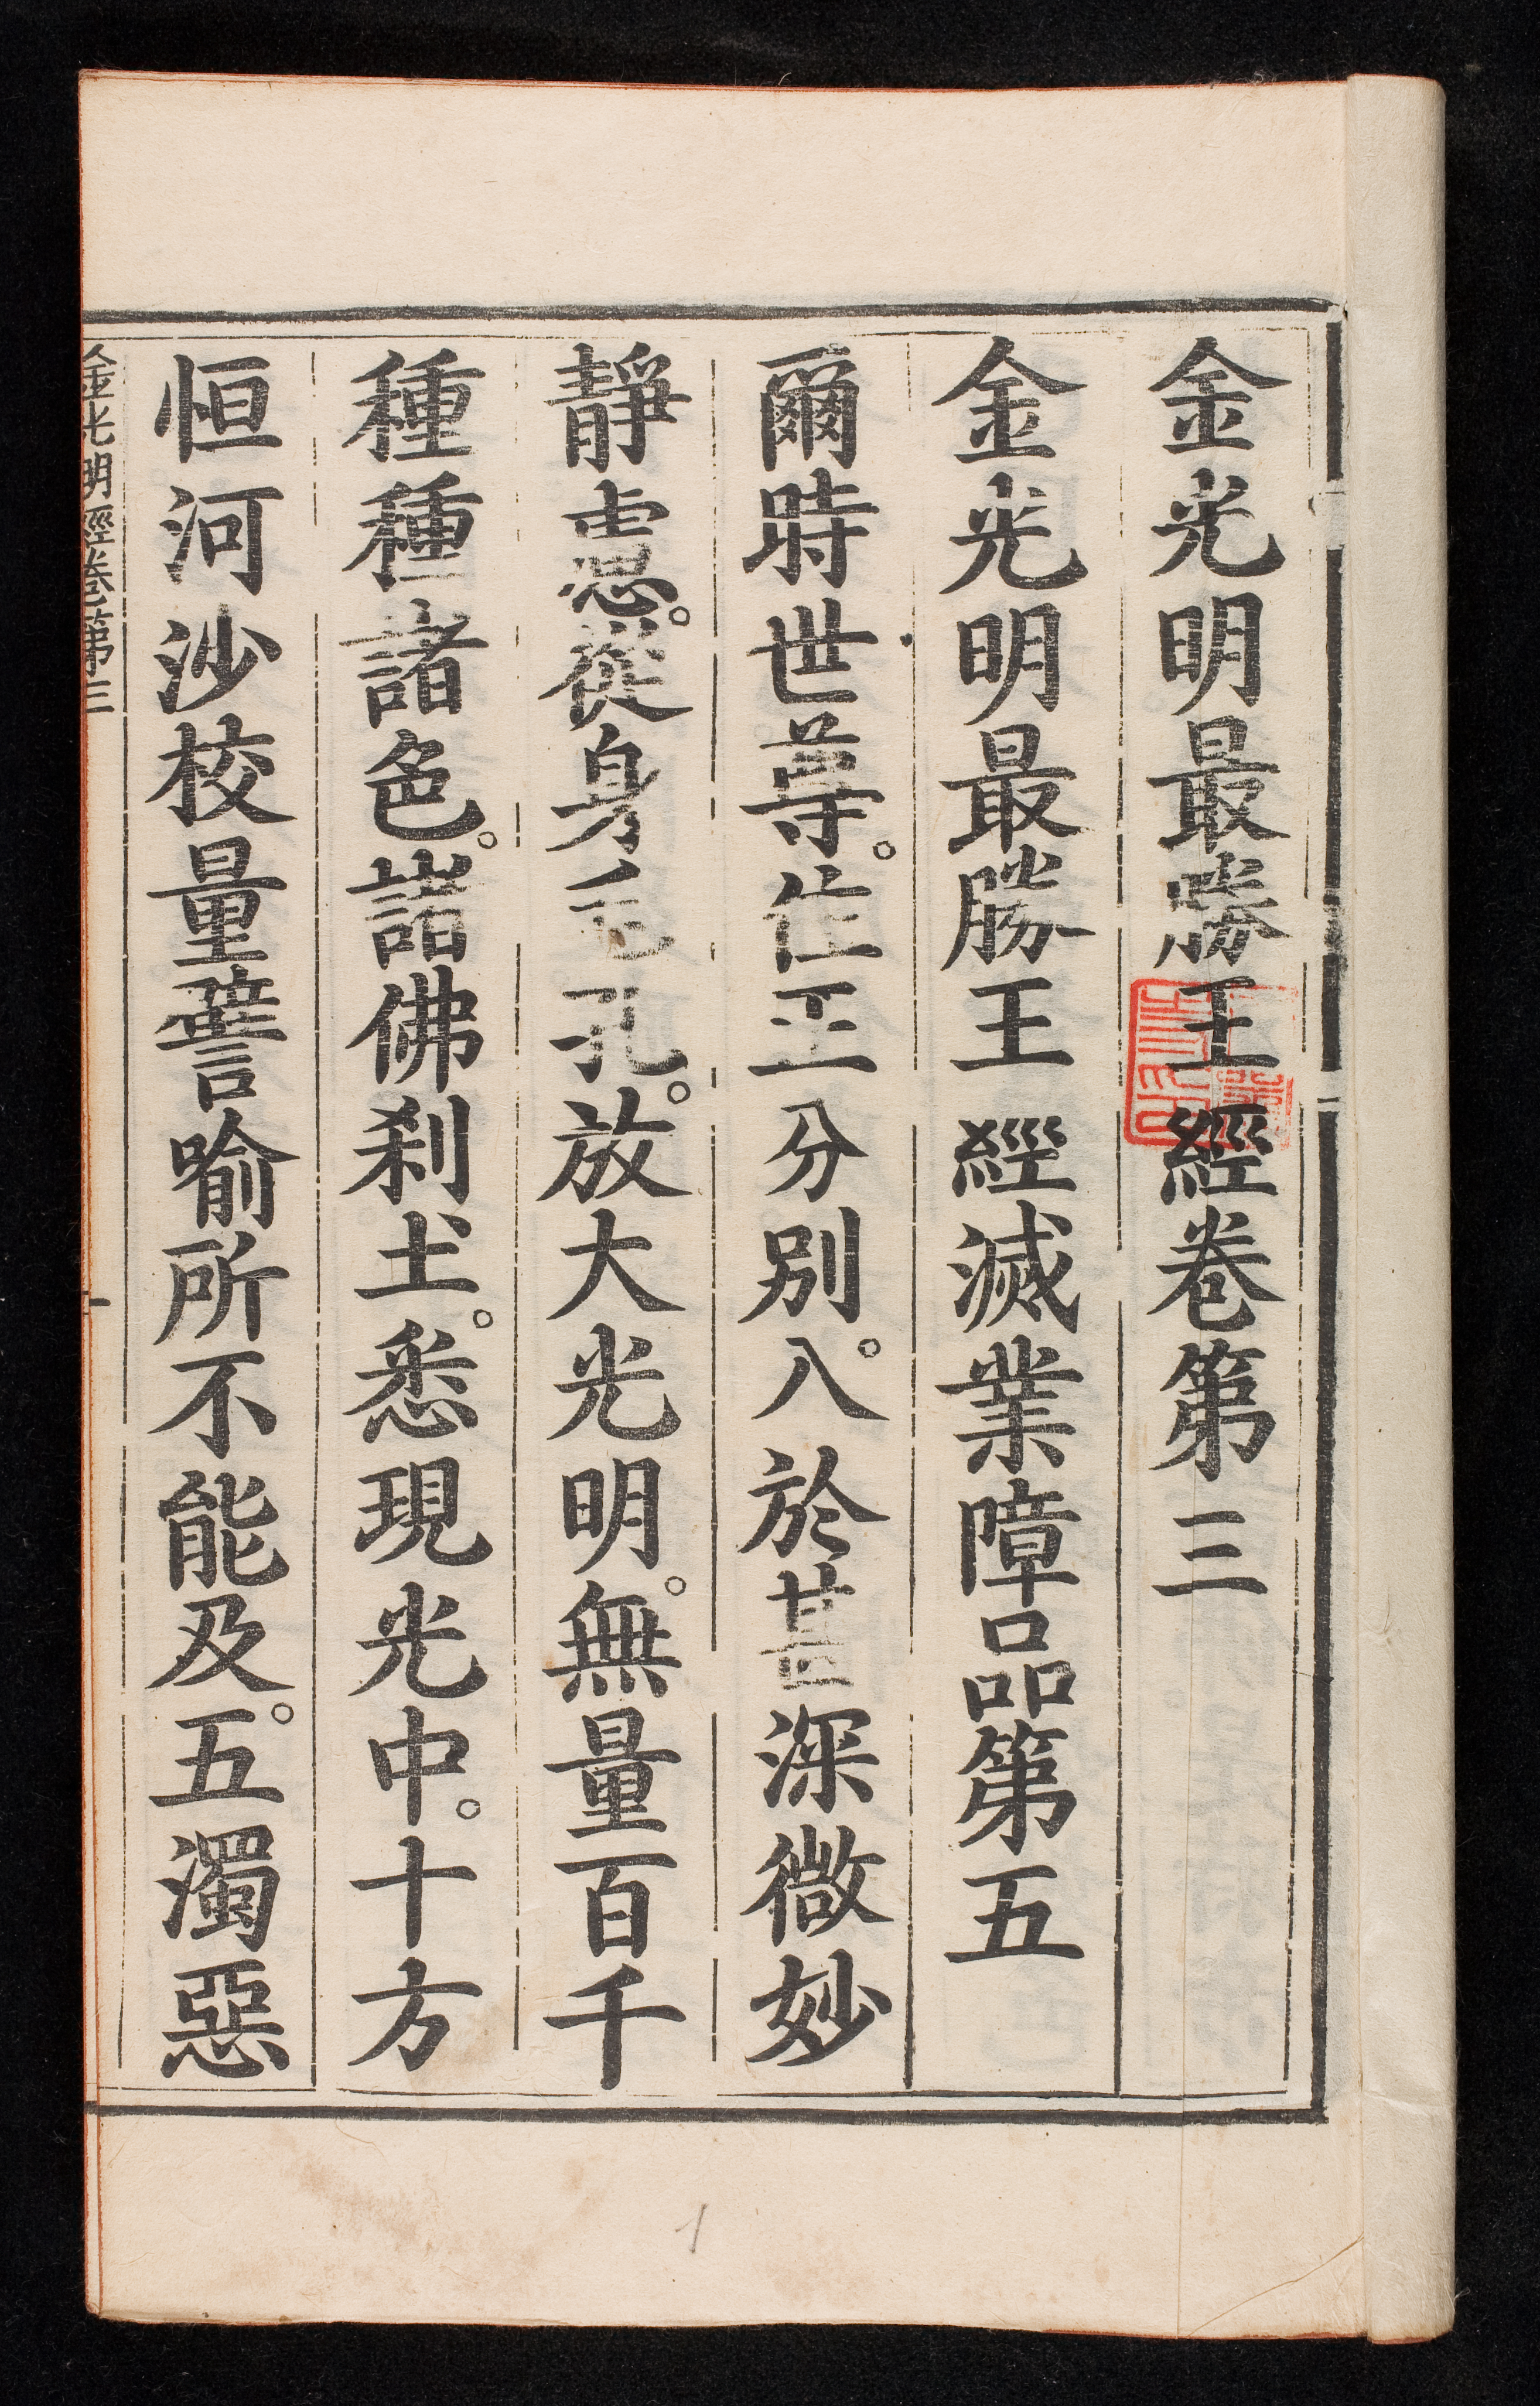 金光明最勝王經卷第三
金光明最勝王經滅業障品第五
爾時世尊。住正分別。入於甚深微妙
靜慮。從身毛孔。放大光明。無量百千
種種諸色。諸佛刹土。悉現光中。十方
恒河沙校量譬喻所不能及。五濁惡
金光明經卷第三
一